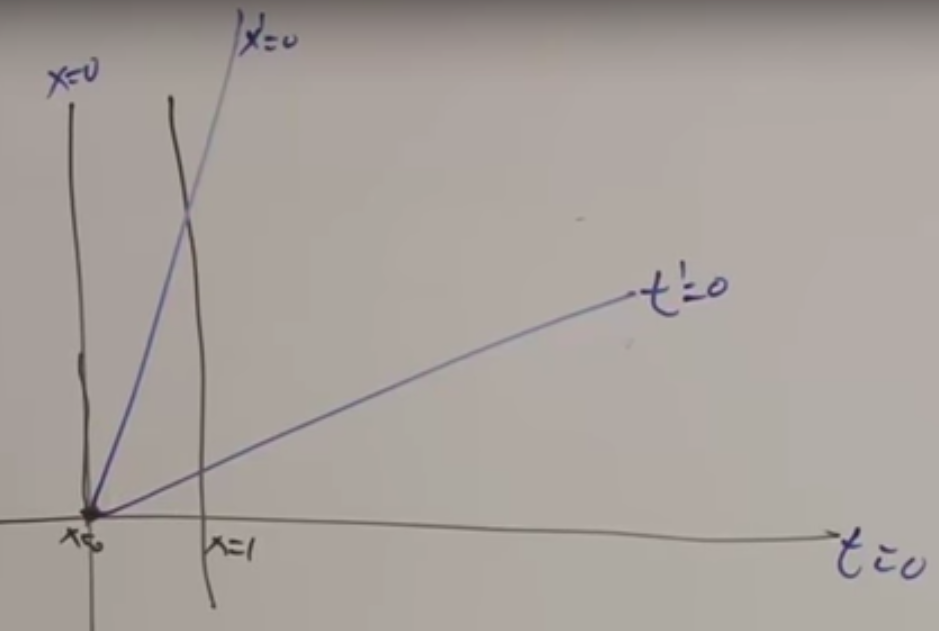 x'=0
x=0
t'=0
x=0
x=1
t=0